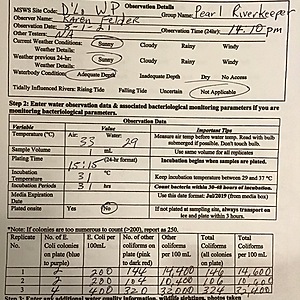 Observation Details
MSWS Site Code: D'Lo W.P. Group Name: Pearl Riverkeeper
Observer Name: Karen Felder
Date: 8-1-21 Observation Time (24hr): 14:10 pm
Other Testers: NA
Current Weather Conditions: Sunny Cloudy Rainy Windy
Weather Details:
Weather previous 24-hr: Sunny Cloudy Rainy Windy
Weather Details:
Waterbody Condition: Adequate Depth Inadequate Depth Dry No Access
Tidally Influenced Rivers: Rising Tide Falling Tide Uncertain Not Applicable
Step 2: Enter water observation data & associated bacteriological monitoring parameters if you are
monitoring bacteriological parameters.
Observation Data
Variable Value Important Tips
Temperature (°C) Air: 33 Water: 29 Measure air temp before water temp. Read with bulb
submerged if possible. Don't touch bulb.
Sample Volume 1 mL Use same volume for all replicates
Plating Time 15:15 (24-hr format) Incubation begins when samples are plated.
Incubation
Temperature 31 °C Keep incubation temperature between 29 and 37 °C
Incubation Periods 31 hrs Count bacteria within 30-48 hours of incubation.
Media Expiration
Date Use this date format: Jul/2019 (from media box)
Plated onsite Yes No If not plated at sampling site, always transport on
ice and plate within 3 hours.
*Note: If colonies are too numerous to count (>200), report as 250.
Replicate
No. No. of E.
Coli colonies
on plate (blue
to purple) E. Coli per
100mL No. of other
coliforms on
plate (pink
to dark red) Other
coliforms
per 100mL Total
Coliforms
(all colonies
on plate) Total
Coliforms
per 100mL
1 2 200 144 14,400 146 14,600
2 2 200 104 10,400 106 10,600
3 4 400 320 32,000 324 32,400
Step 3: Enter any additional water quality information, wildlife sightings, photos taken